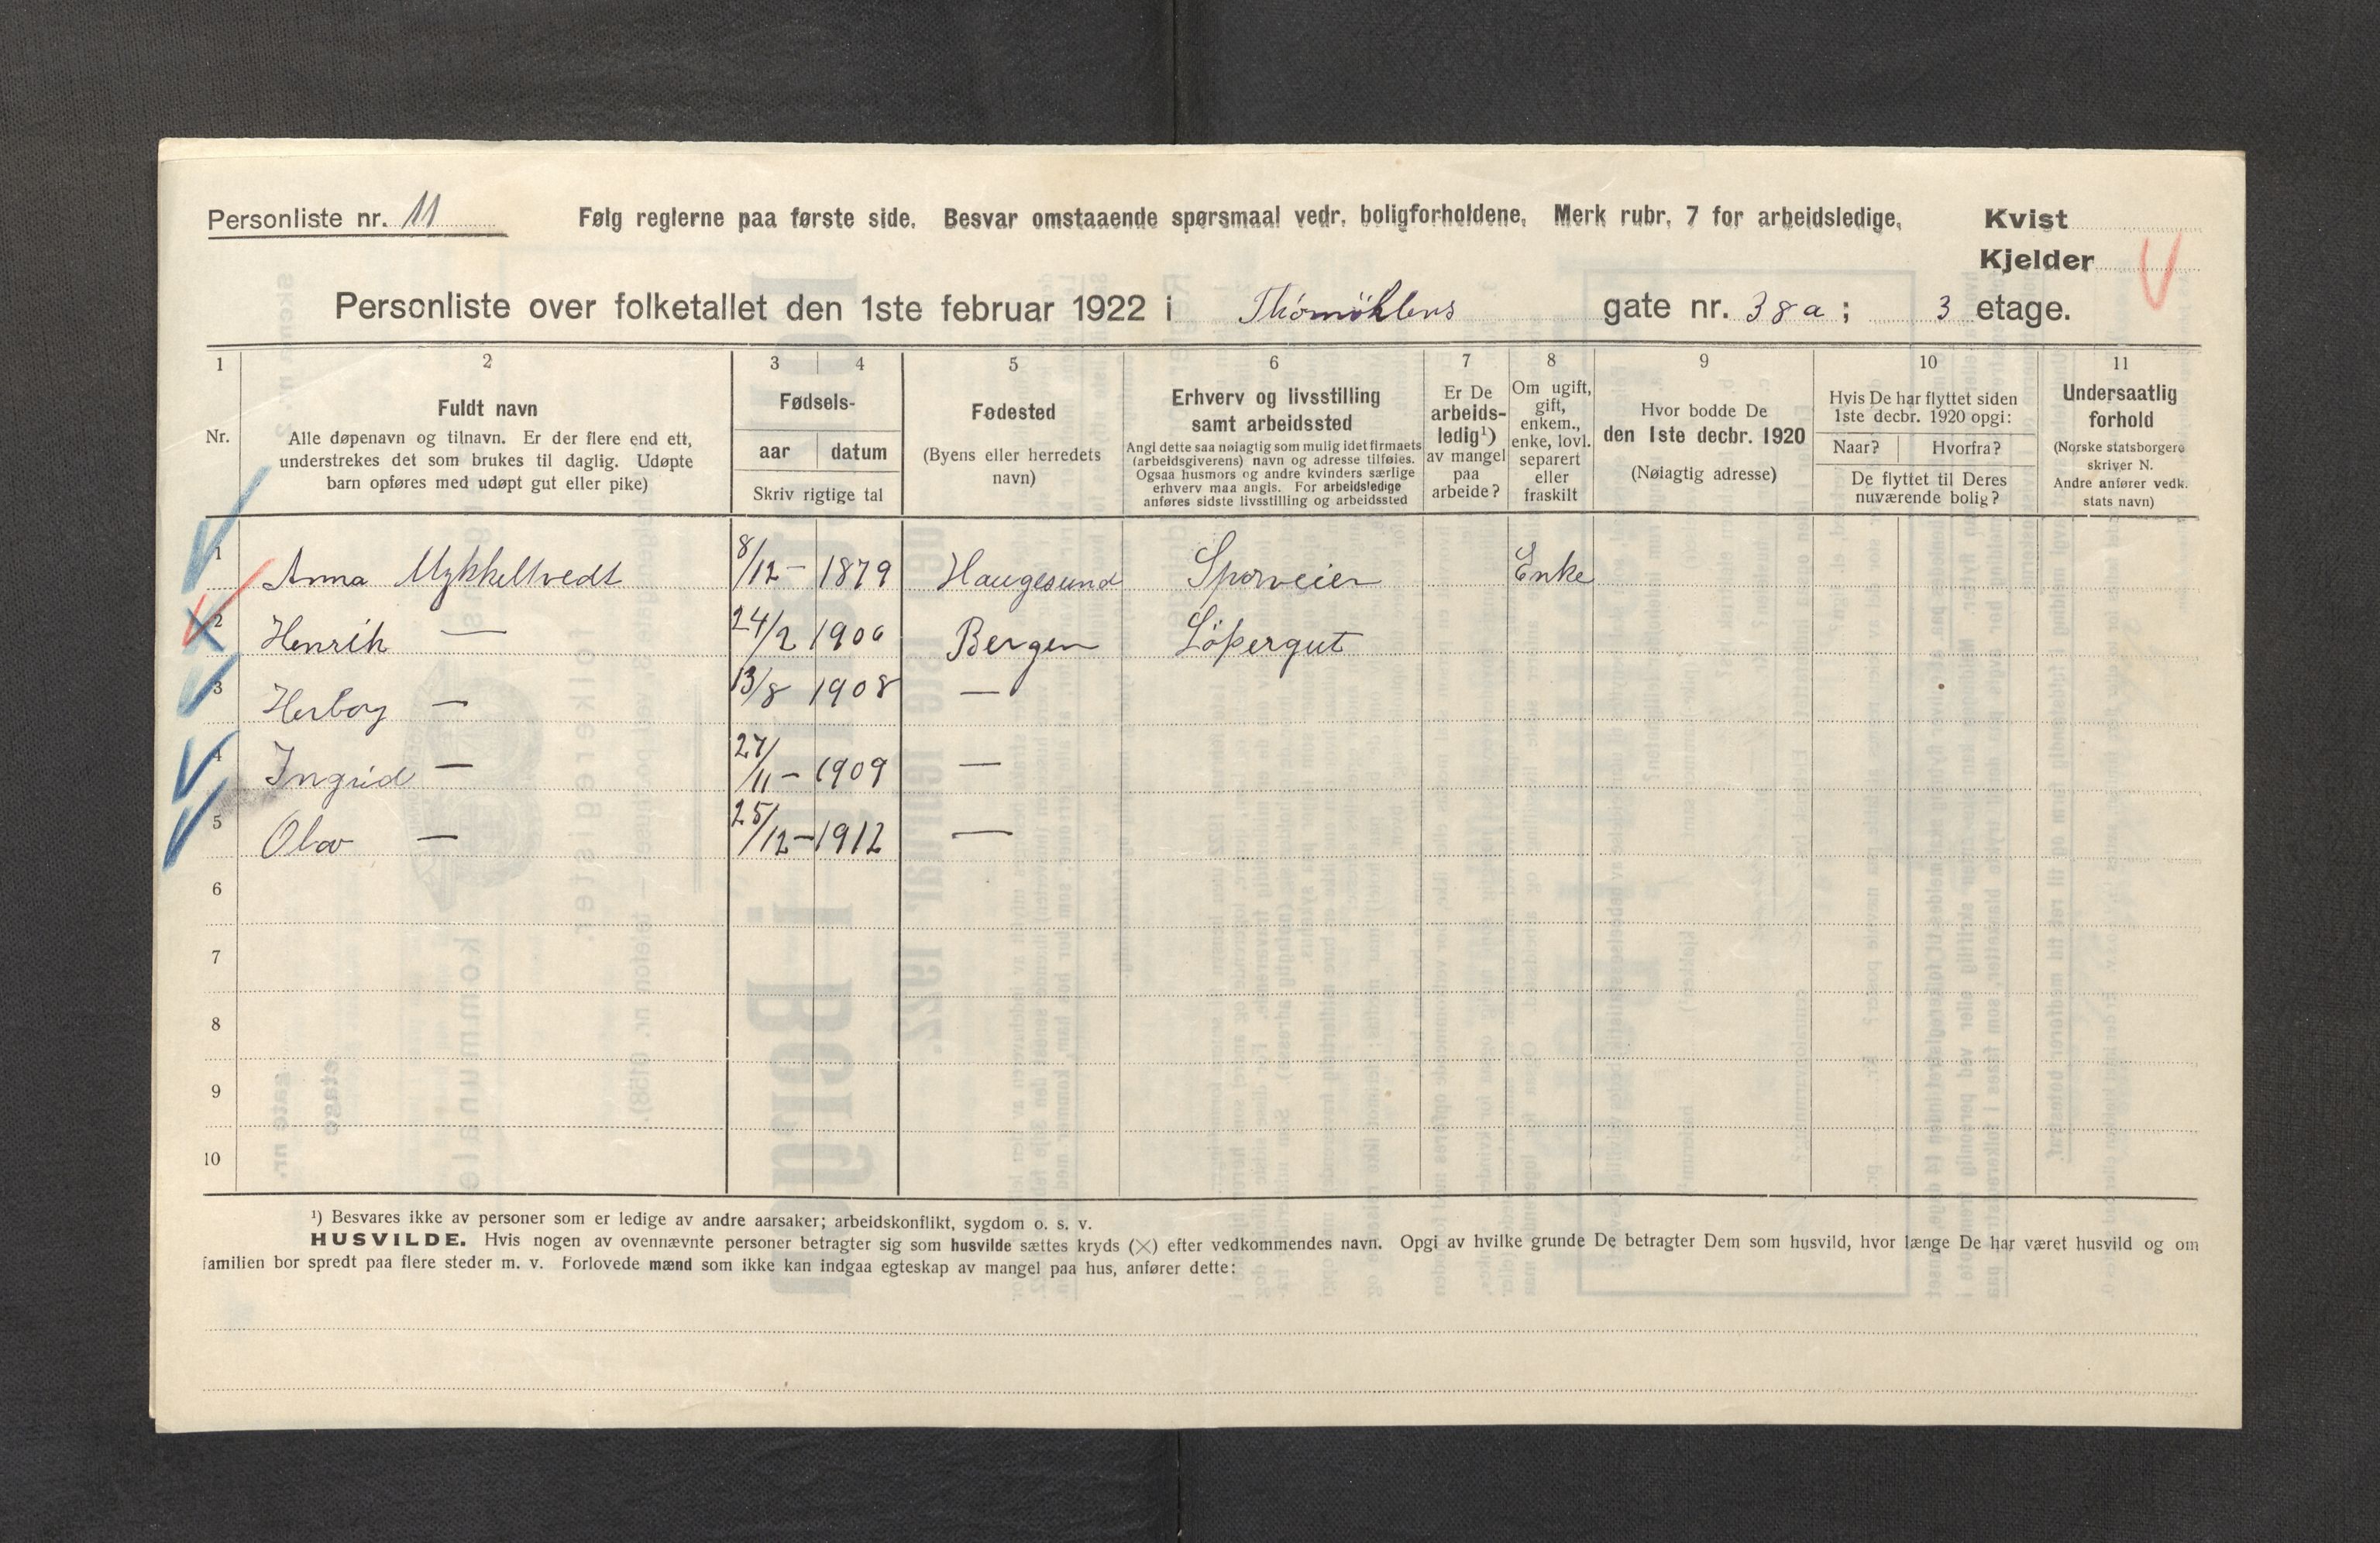 Personliste nr. 11 Følg reglerne paa første side. Besvar omstaaende spørsmaal vedr. boligforholdene. Merk rubr. 7 for arbeidsledige. Kvist
Kjelder
Personliste over folketallet den 1ste februar 1922 i Thormøhlens gate nr. 38a; 3 etage.
1 2 3 4 5 6 7 8 9 10 11
Nr.
Fuldt navn
Alle døpenavn og tilnavn. Er der flere end ett,
understrekes det som brukes til daglig. Udøpte
barn opføres med udøpt gut eller pike)
Fødsels-
aar datum
Skriv rigtige tal
Fødested
(Byens eller herredets
navn)
Erhverv og livsstilling
samt arbeidssted
Angi dette saa nøiagtig som mulig idet firmaets
(arbeidsgiverens) navn og adresse tilføies.
Ogsaa husmors og andre kvinders særlige
erhverv maa angis. For arbeidsledige
anføres sidste livsstilling og arbeidssted
Er De
arbeids-
ledig¹)
av mangel
paa
arbeide?
Om ugift,
gift,
enkem.,
enke, lovl.
separert
eller
fraskilt
Hvor bodde De
den 1ste decbr. 1920
(Nøiagtig adresse)
Hvis De har flyttet siden
1ste decbr. 1920 opgi:
Naar? Hvorfra?
De flyttet til Deres
nuværende bolig?
Undersaatlig
forhold
(Norske statsborgere
skriver N.
Andre anfører vedk.
stats navn)
1 Anna Mykkeltvedt 8/12 - 1879 Haugesund Sporveier Enke
2 Henrik — 24/2 1906 Bergen Löpergut
3 Herborg — 13/8 1908 —
4 Ingrid — 27/11 - 1909 —
5 Olav — 25/12 - 1912 —
6
7
8
9
10
¹) Besvares ikke av personer som er ledige av andre aarsaker; arbeidskonflikt, sygdom o. s. v.
HUSVILDE. Hvis nogen av ovennævnte personer betragter sig som husvilde sættes kryds (×) efter vedkommendes navn. Opgi av hvilke grunde De betragter Dem som husvild, hvor længe De har været husvild og om
familien bor spredt paa flere steder m. v. Forlovede mænd som ikke kan indgaa egteskap av mangel paa hus, anfører dette: